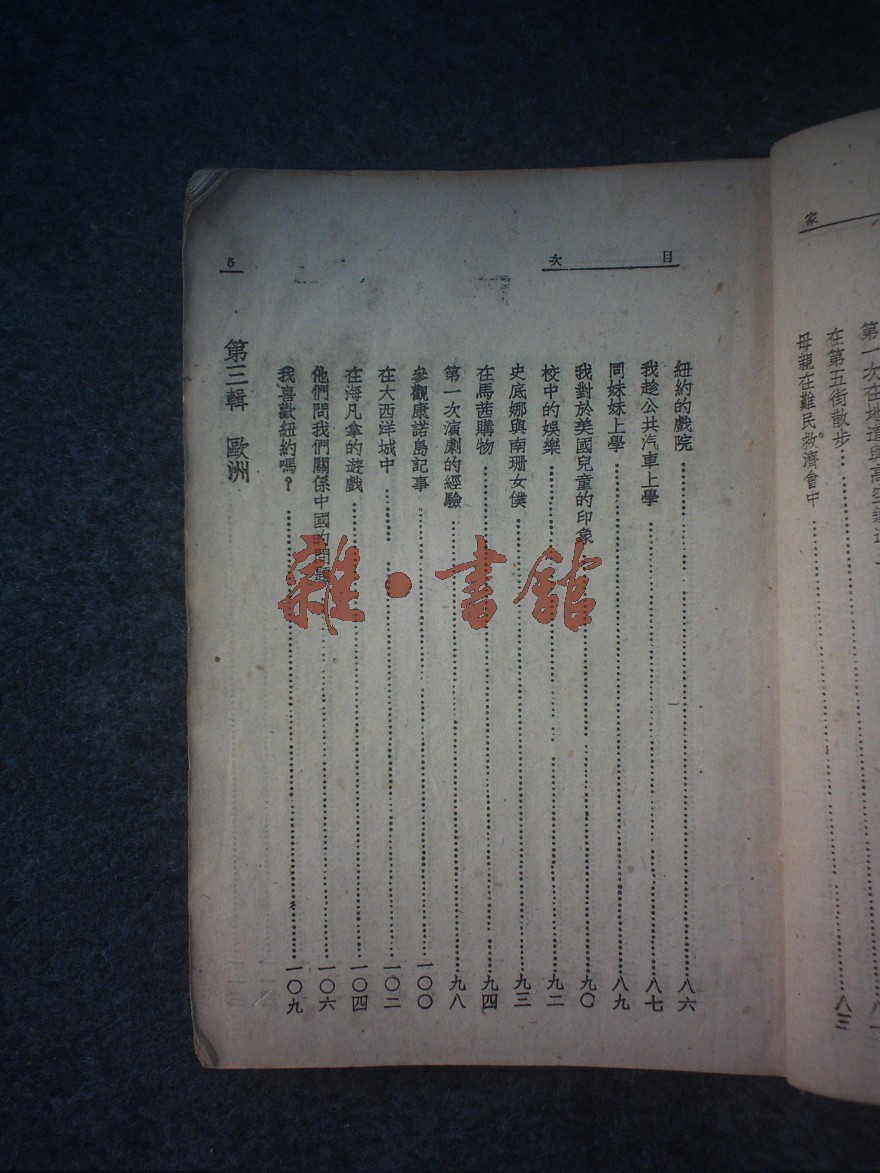 家
第一次在地道與高空
在第五街散步…八三
母親在難民救濟會中
目次
5
紐約的戲院…八六
我趁公共汽車上學…八七
同妹妹上學…八九
我對於美國兒童的印象…九〇
校中的娛樂…九二
史底娜與南珊女僕…九三
在馬茜購物…九四
第一次演劇的經驗…九八
參觀康諾島記事…一〇〇
在大西洋城中…一〇二
在海凡拿的遊戲…一〇四
他們問我們關係中國的問題…一〇六
我喜歡紐約嗎？…一〇九
第三輯 歐洲
雜·書館